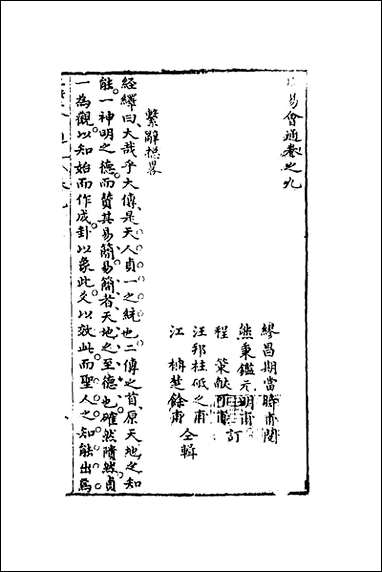 易會通卷之九
繆昌期當時甫閱
熊秉鑑元明甫訂
程 策献可甫
汪邦柱砥之甫
江 柟楚餘甫 仝輯
繫辭總畧
經繹曰大哉乎大傳是天人貞一之統也二傳之首原天地之知
能一神明之德而贊其易簡易簡者天地之至德也確然隤然貞
一為觀以知始而作成卦以象此爻以效此而聖人之知能出焉